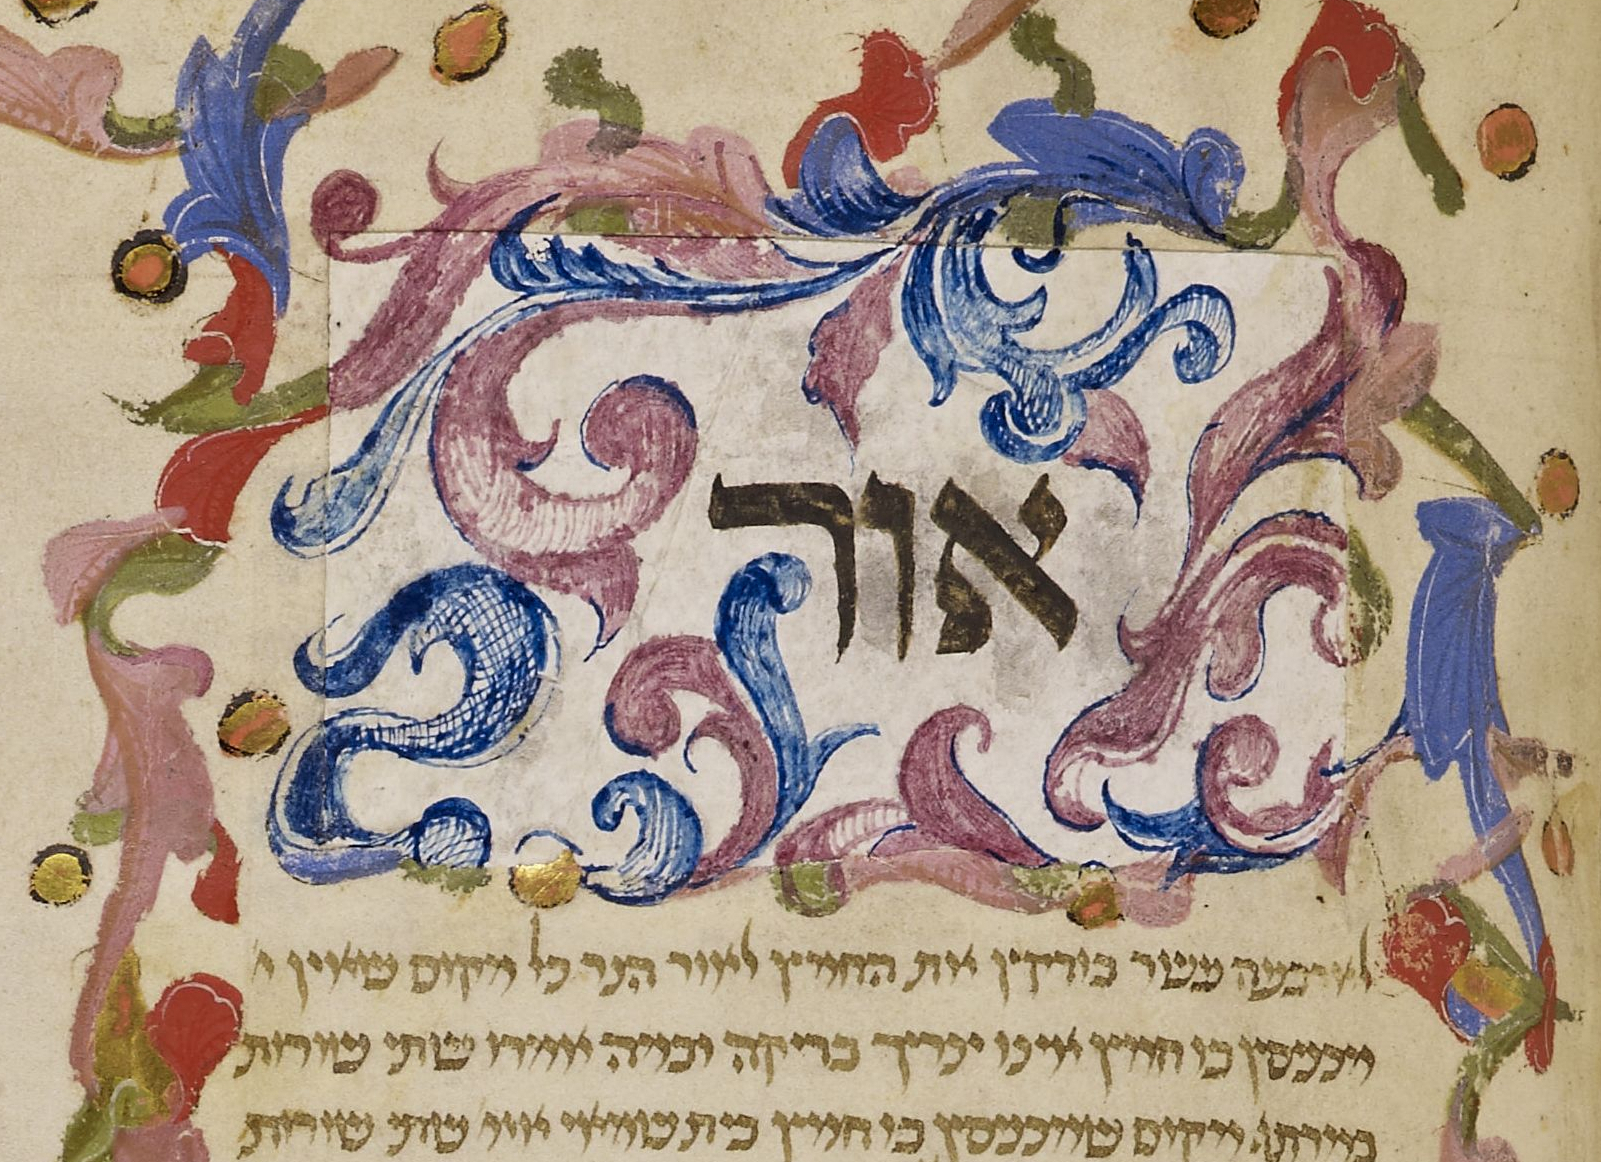 אור
לארבעה עשר בודקין את החמץ לאור הנר כל מקום שאין
מכניסין בו חמץ אינו צריך בדיקה ובמה אמרו שתי שורות
במרתף מקום שמכניסין בו חמץ בית שמאי אומ' שתי שורות